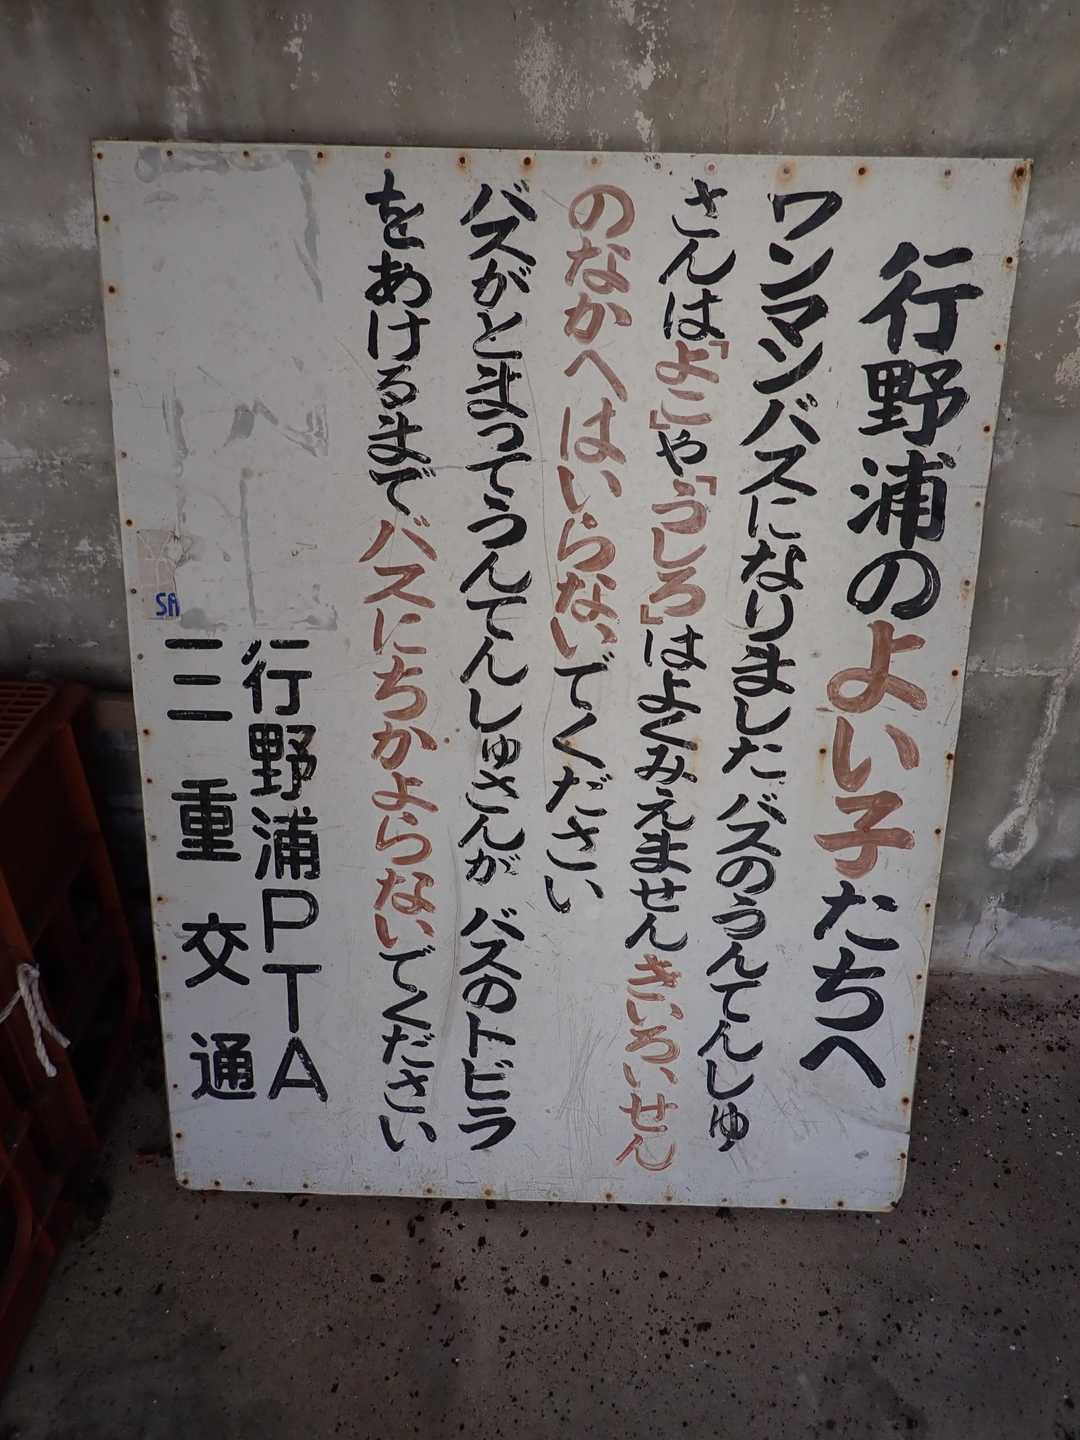 行野浦のよい子たちへ
ワンマンバスになりました バスのうんてんしゅ
さんは「よこ」や「うしろ」はよくみえません きいろいせん
のなかへはいらないでください
バスがとまってうんてんしゅさんが バスのトビラ
をあけるまでバスにちかよらないでください
行野浦PTA
三重交通
SA